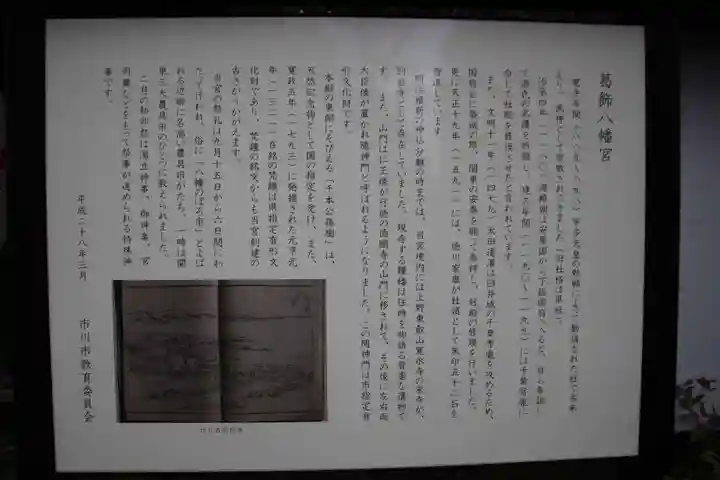 葛飾八幡宮
寛平年間(八八九〜八九八)宇多天皇の勅願によって勧請された社で古来
より、武神として崇敬されてきました(旧社格は県社)。
治承四年(一一八〇)源頼朝は安房国から下総国府へ入ると、自ら参詣し
て源氏の武運を祈願し、建久年間(一一九〇〜一一九九)には千葉常胤に
命じて社殿を修復させたと言われています。
また、文明十一年(一四七九)太田道灌は臼井城の千葉孝胤を攻めるため、
国府台に築城の際、関東の安泰を願って参拝し、社殿の修理を行いました。
更に天正十九年(一五九一)には、徳川家康が社領として朱印五十二石を
寄進しています。
明治維新の神仏分離の時までは、当宮境内には上野東叡山寛永寺の末寺が、
別当寺として存在していました。現存する鐘楼は往時を物語る貴重な遺物で
す。また、山門は仁王様が行徳の徳願寺の山門に移されて、その後に左右両
大臣様が置かれ随神門と呼ばれるようになりました。この随神門は市指定有
形文化財です。
本殿の東側にそびえる「千本公孫樹」は、
天然記念物として国の指定を受け、また、
寛政五年(一七九三)に発掘された元亨元
年(一三二一)在銘の梵鐘は県指定有形文
化財であり、梵鐘の銘文からも当宮創建の
古さがうかがえます。
当宮の祭礼は九月十五日から六日間にわ
たって行われ、俗に「八幡のぼろ市」とよば
れる近郷に名高い農具市がたち、一時は関
東三大農具市のひとつに数えられました。
二月の初卯祭は湯立神事、御神楽、宮
司舞などをもって祭事が進められる特殊神
事です。
平成二十八年三月
市川市教育委員会